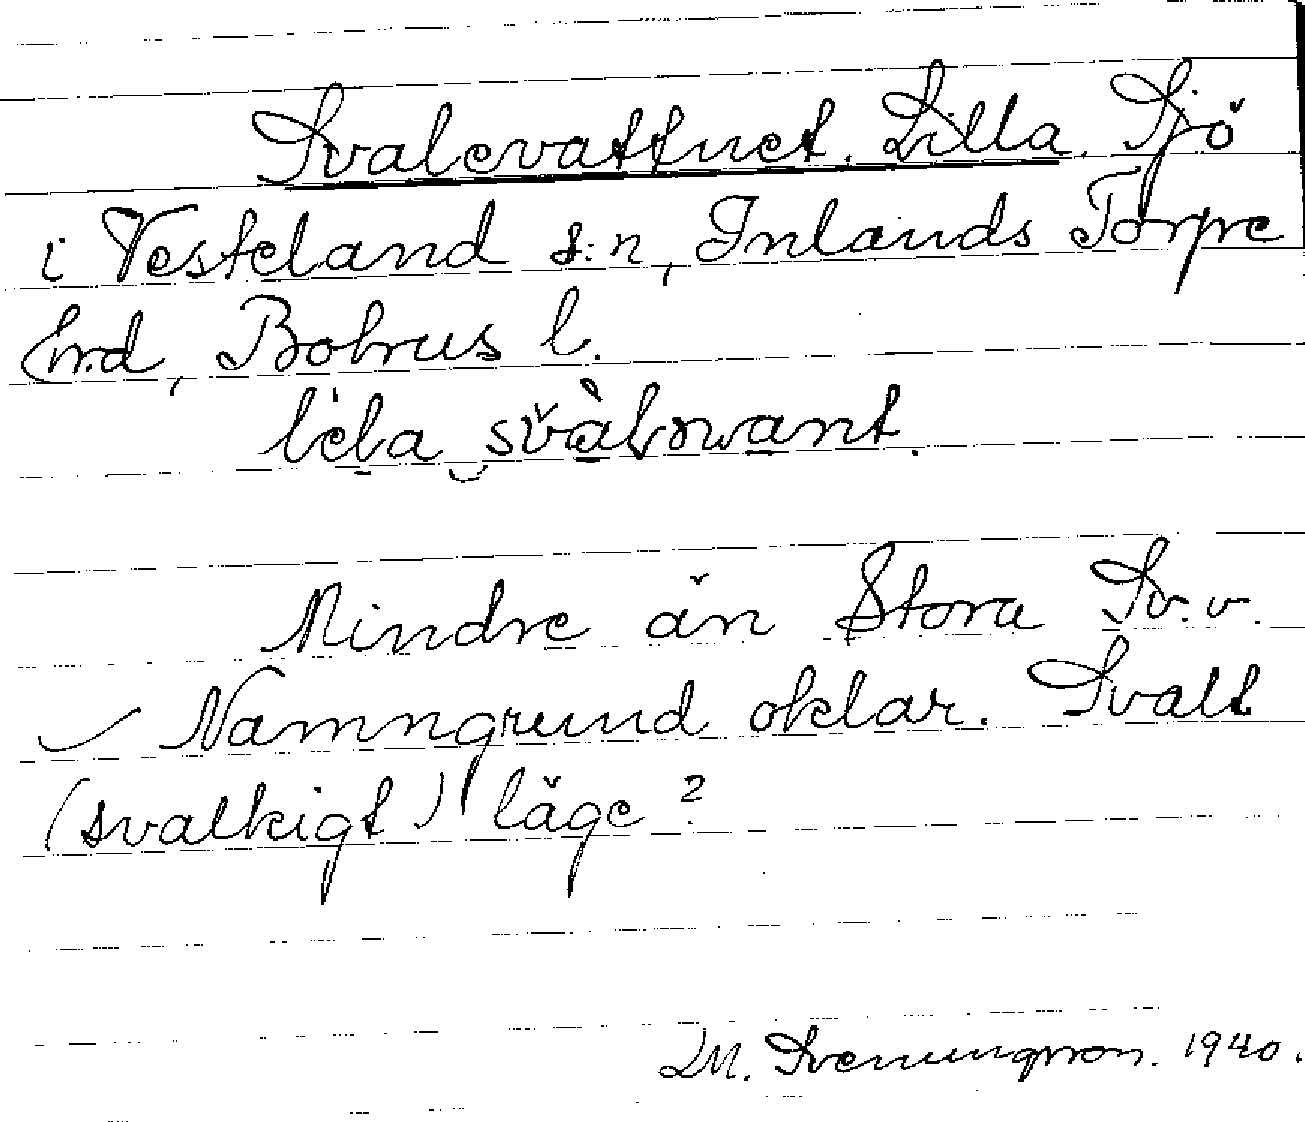 Svalevattnet, Lilla, Sjö
i Vesterland s:n, Inlands Torpe
hrd, Bohus l.
Mindre än Stora Sv.v.
Namngrund oklar. Svalt
(svalkigt) läge?
M. Svenungsson. 1940.